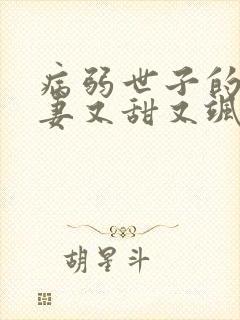 病弱世子的
妻又甜又飒
胡星斗